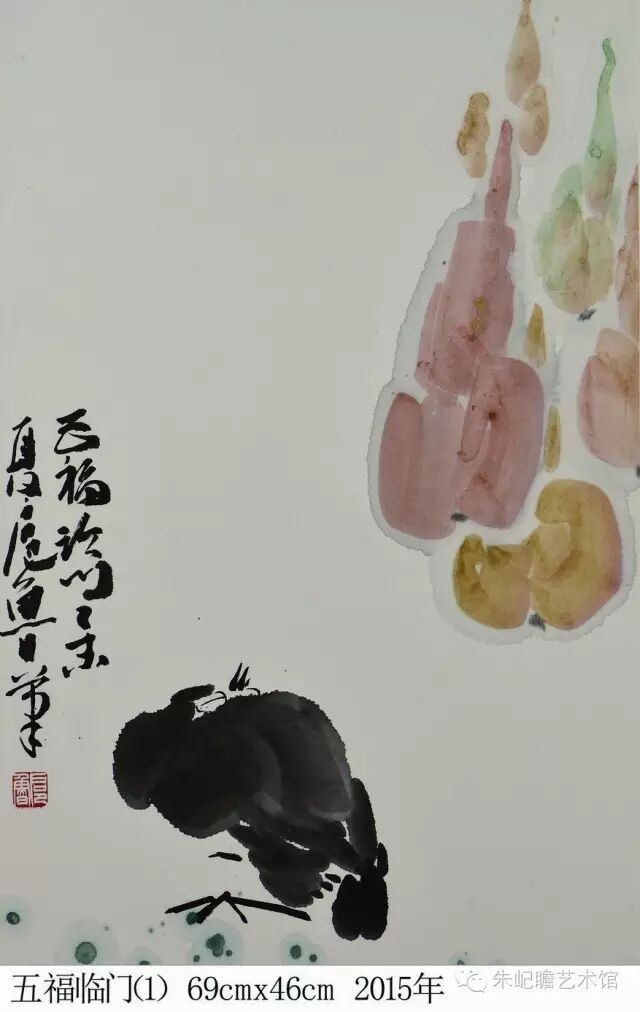 五福临门乙未
夏扈鲁笔
五福临门(1) 69cmx46cm 2015年
朱屺瞻艺术馆